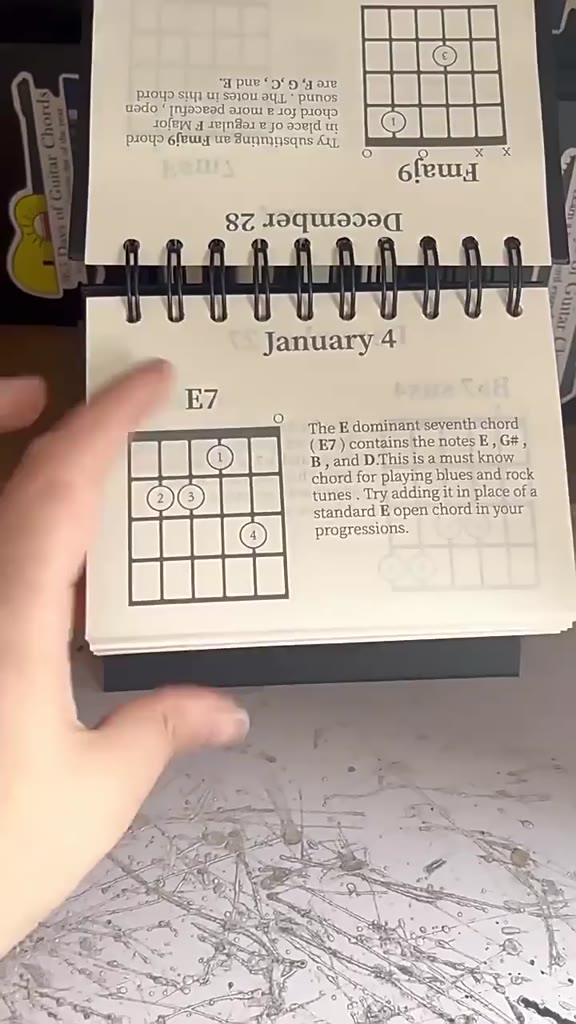 Days of Guitar Chords
3
1
O O X X
Fmaj9
Try substituting an Fmaj9 chord
in place of a regular F Major
chord for a more peaceful , open
sound . The notes in this chord
are F, G ,C , and E.
December 28
January 4
E7
O
1
2 3
4
The E dominant seventh chord
( E7 ) contains the notes E , G# ,
B , and D.This is a must know
chord for playing blues and rock
tunes . Try adding it in place of a
standard E open chord in your
progressions.